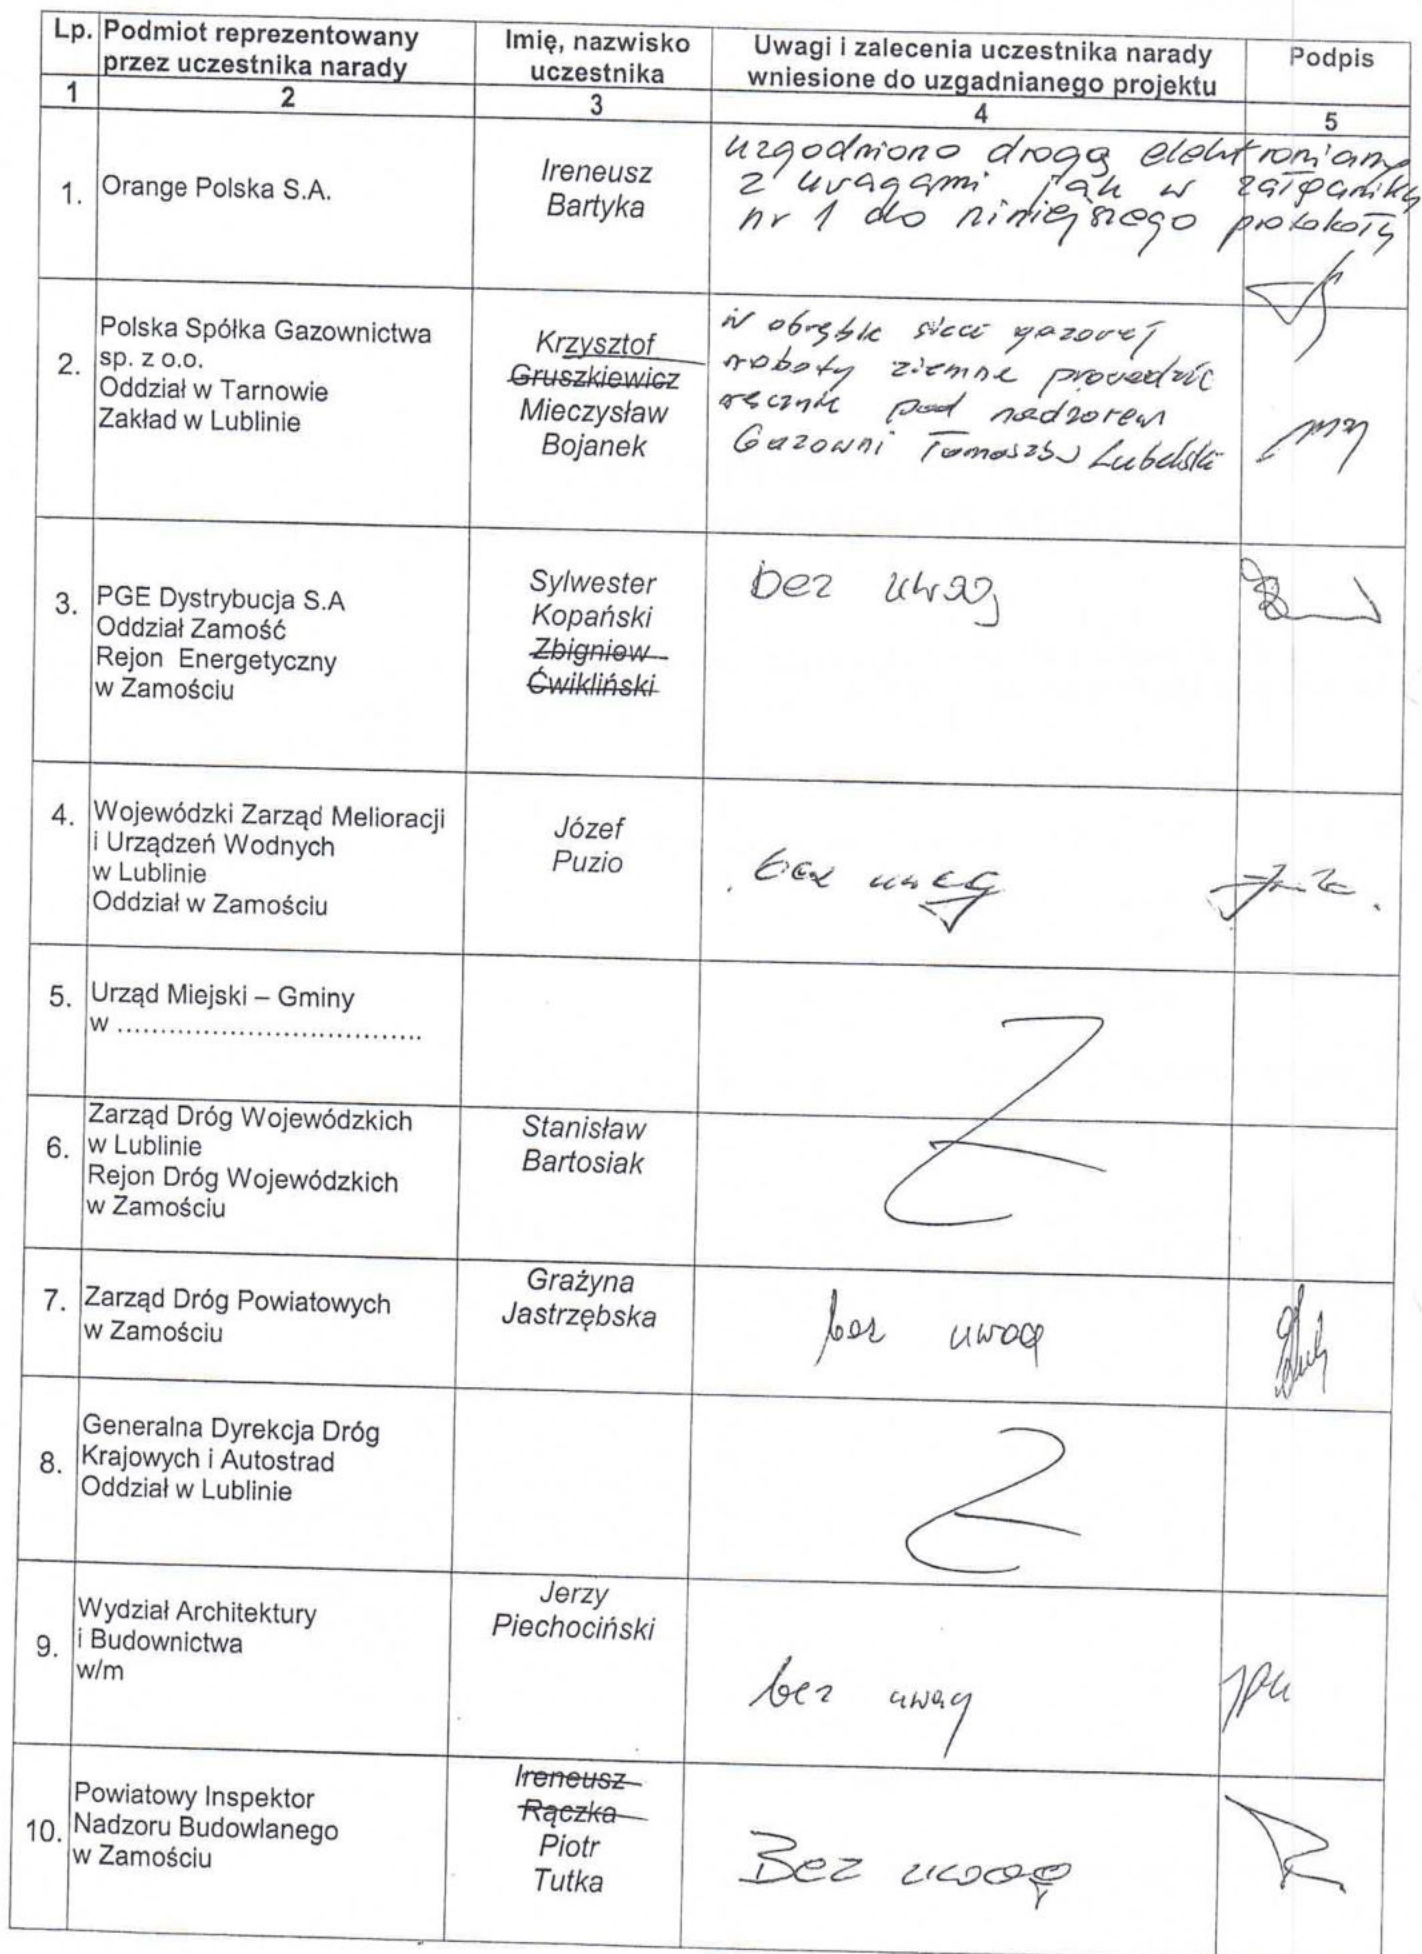 Lp. Podmiot reprezentowany przez uczestnika narady
Imię, nazwisko uczestnika
Uwagi i zalecenia uczestnika narady wniesione do uzgadnianego projektu
Podpis
1 2 3 4 5
1. Orange Polska S.A.
Ireneusz
Bartyka
uzgodniono drogą elektroniczną
z uwagami jak w załączniku
nr 1 do niniejszego protokołu
2. Polska Spółka Gazownictwa
sp. z o.o.
Oddział w Tarnowie
Zakład w Lublinie
Krzysztof
Gruszkiewicz
Mieczysław
Bojanek
W obrębie sieci gazowej
roboty ziemne prowadzić
ręcznie pod nadzorem
Gazowni Tomaszów Lubelski
3. PGE Dystrybucja S.A
Oddział Zamość
Rejon Energetyczny
w Zamościu
Sylwester
Kopański
Zbigniew
Ćwikliński
bez uwag
4. Wojewódzki Zarząd Melioracji
i Urządzeń Wodnych
w Lublinie
Oddział w Zamościu
Józef
Puzio
bez uwag
5. Urząd Miejski – Gminy
w ...................................
6. Zarząd Dróg Wojewódzkich
w Lublinie
Rejon Dróg Wojewódzkich
w Zamościu
Stanisław
Bartosiak
7. Zarząd Dróg Powiatowych
w Zamościu
Grażyna
Jastrzębska
bez uwag
8. Generalna Dyrekcja Dróg
Krajowych i Autostrad
Oddział w Lublinie
9. Wydział Architektury
i Budownictwa
w/m
Jerzy
Piechociński
bez uwag
10. Powiatowy Inspektor
Nadzoru Budowlanego
w Zamościu
Ireneusz
Rączka
Piotr
Tutka
Bez uwag